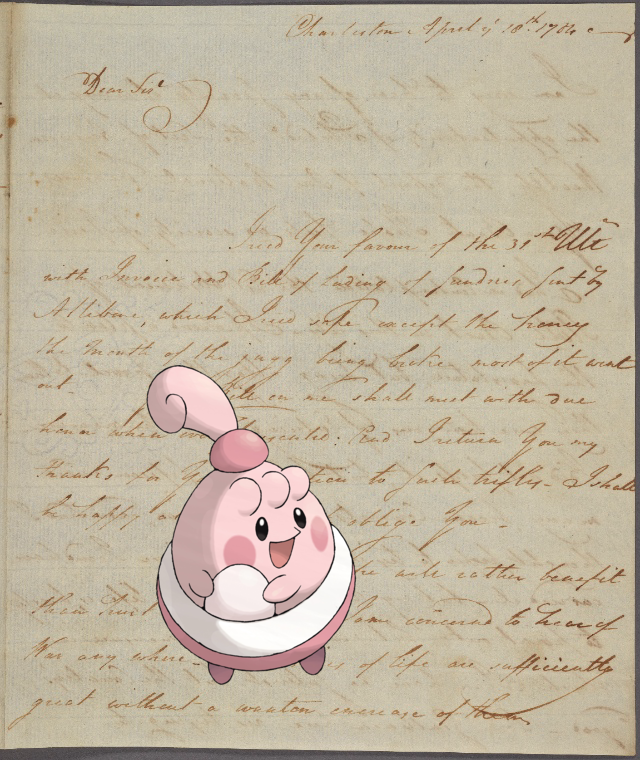 Charleston April ye 18th. 1784
Dear Sir
I recd Your favour of the 31st Ulto
with Invoice and Bill of Lading of sundries sent by
Allibone, which I recd safe except the honey
the mouth of the jugg being broke most of it went
out. on me shall meet with due
honor when : And I return You my
thanks for to such trifles - I shall
be happy oblige You -
he will rather benefit
than hurt I am concerned to hear of
War any where - of life are sufficiently
great without a wanton encrease of them